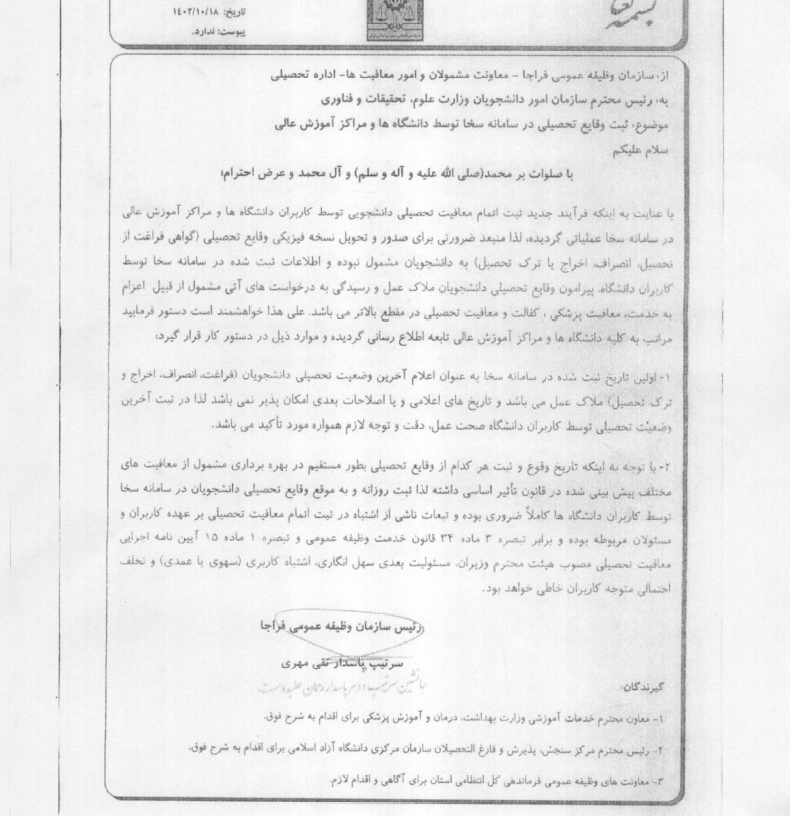 بسمه تعالی
تاریخ: ۱۴۰۲/۱۰/۱۸
پیوست: ندارد.
از: سازمان وظیفه عمومی فراجا - معاونت مشمولان و امور معافیت ها- اداره تحصیلی
به: رئیس محترم سازمان امور دانشجویان وزارت علوم، تحقیقات و فناوری
موضوع: ثبت وقایع تحصیلی در سامانه سخا توسط دانشگاه ها و مراکز آموزش عالی
سلام علیکم
با صلوات بر محمد(صلی الله علیه و آله و سلم) و آل محمد و عرض احترام؛
با عنایت به اینکه فرآیند جدید ثبت اتمام معافیت تحصیلی دانشجویی توسط کاربران دانشگاه ها و مراکز آموزش عالی
در سامانه سخا عملیاتی گردیده، لذا منبعد ضرورتی برای صدور و تحویل نسخه فیزیکی وقایع تحصیلی (گواهی فراغت از
تحصیل، انصراف، اخراج یا ترک تحصیل) به دانشجویان مشمول نبوده و اطلاعات ثبت شده در سامانه سخا توسط
کاربران دانشگاه، پیرامون وقایع تحصیلی دانشجویان ملاک عمل و رسیدگی به درخواست های آتی مشمول از قبیل اعزام
به خدمت، معافیت پزشکی، کفالت و معافیت تحصیلی در مقطع بالاتر می باشد. علی هذا خواهشمند است دستور فرمایید
مراتب به کلیه دانشگاه ها و مراکز آموزش عالی تابعه اطلاع رسانی گردیده و موارد ذیل در دستور کار قرار گیرد:
۱- اولین تاریخ ثبت شده در سامانه سخا به عنوان اعلام آخرین وضعیت تحصیلی دانشجویان (فراغت، انصراف، اخراج و
ترک تحصیل) ملاک عمل می باشد و تاریخ های اعلامی و یا اصلاحات بعدی امکان پذیر نمی باشد لذا در ثبت آخرین
وضعیّت تحصیلی توسط کاربران دانشگاه صحت عمل، دقت و توجه لازم همواره مورد تأکید می باشد.
۲- با توجه به اینکه تاریخ وقوع و ثبت هر کدام از وقایع تحصیلی بطور مستقیم در بهره برداری مشمول از معافیت های
مختلف پیش بینی شده در قانون تأثیر اساسی داشته لذا ثبت روزانه و به موقع وقایع تحصیلی دانشجویان در سامانه سخا
توسط کاربران دانشگاه ها کاملاً ضروری بوده و تبعات ناشی از اشتباه در ثبت اتمام معافیت تحصیلی بر عهده کاربران و
مسئولان مربوطه بوده و برابر تبصره ۳ ماده ۳۴ قانون خدمت وظیفه عمومی و تبصره ۱ ماده ۱۵ آیین نامه اجرایی
معافیت تحصیلی مصوب هیئت محترم وزیران، مسئولیت بعدی سهل انگاری، اشتباه کاربری (سهوی یا عمدی) و تخلف
احتمالی متوجه کاربران خاطی خواهد بود.
رئیس سازمان وظیفه عمومی فراجا
سرتیپ پاسدار تقی مهری
جانشین سرتیپ دوم پاسدار رحمان علیدوست
گیرندگان:
۱- معاون محترم خدمات آموزشی وزارت بهداشت، درمان و آموزش پزشکی برای اقدام به شرح فوق.
۲- رئیس محترم مرکز سنجش، پذیرش و فارغ التحصیلان سازمان مرکزی دانشگاه آزاد اسلامی برای اقدام به شرح فوق.
۳- معاونت های وظیفه عمومی فرماندهی کل انتظامی استان برای آگاهی و اقدام لازم.